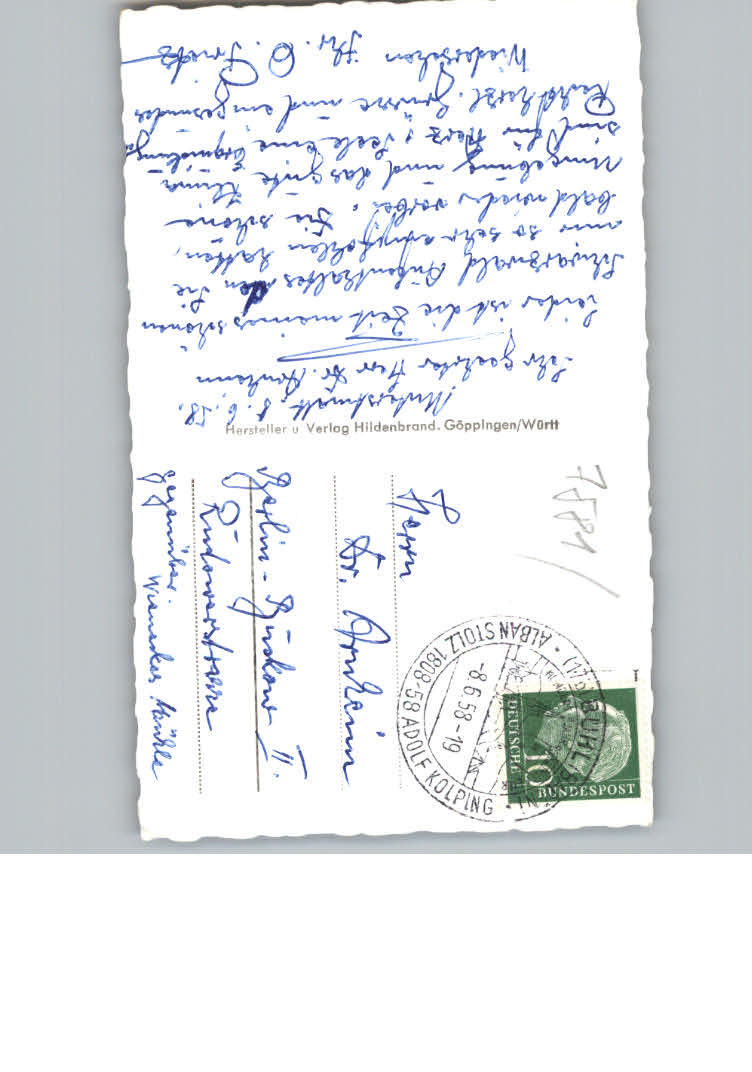 Unterstmatt, 8.6.58.
Sehr geehrter Herr Dr.
Leider ist die Zeit meines schönen
Schwarzwald Aufenthaltes, den Sie
mir so sehr empfohlen hatten,
bald wieder vorbei. Die schöne
Umgebung und das gute Klima
sind für Herz u. Seele eine
Recht herzl. Grüsse und ein gesundes
Wiedersehen Ihr O.
Hersteller u. Verlag Hildenbrand. Göppingen/Württ
7581/
Herrn
Dr.
Berlin-
II.
Rudowerstrasse
gegenüber
BÜHL
(17b)
ALBAN STOLZ 1808·58 ADOLF KOLPING
-8.6.58-19
DEUTSCHE
BUNDESPOST
10
1